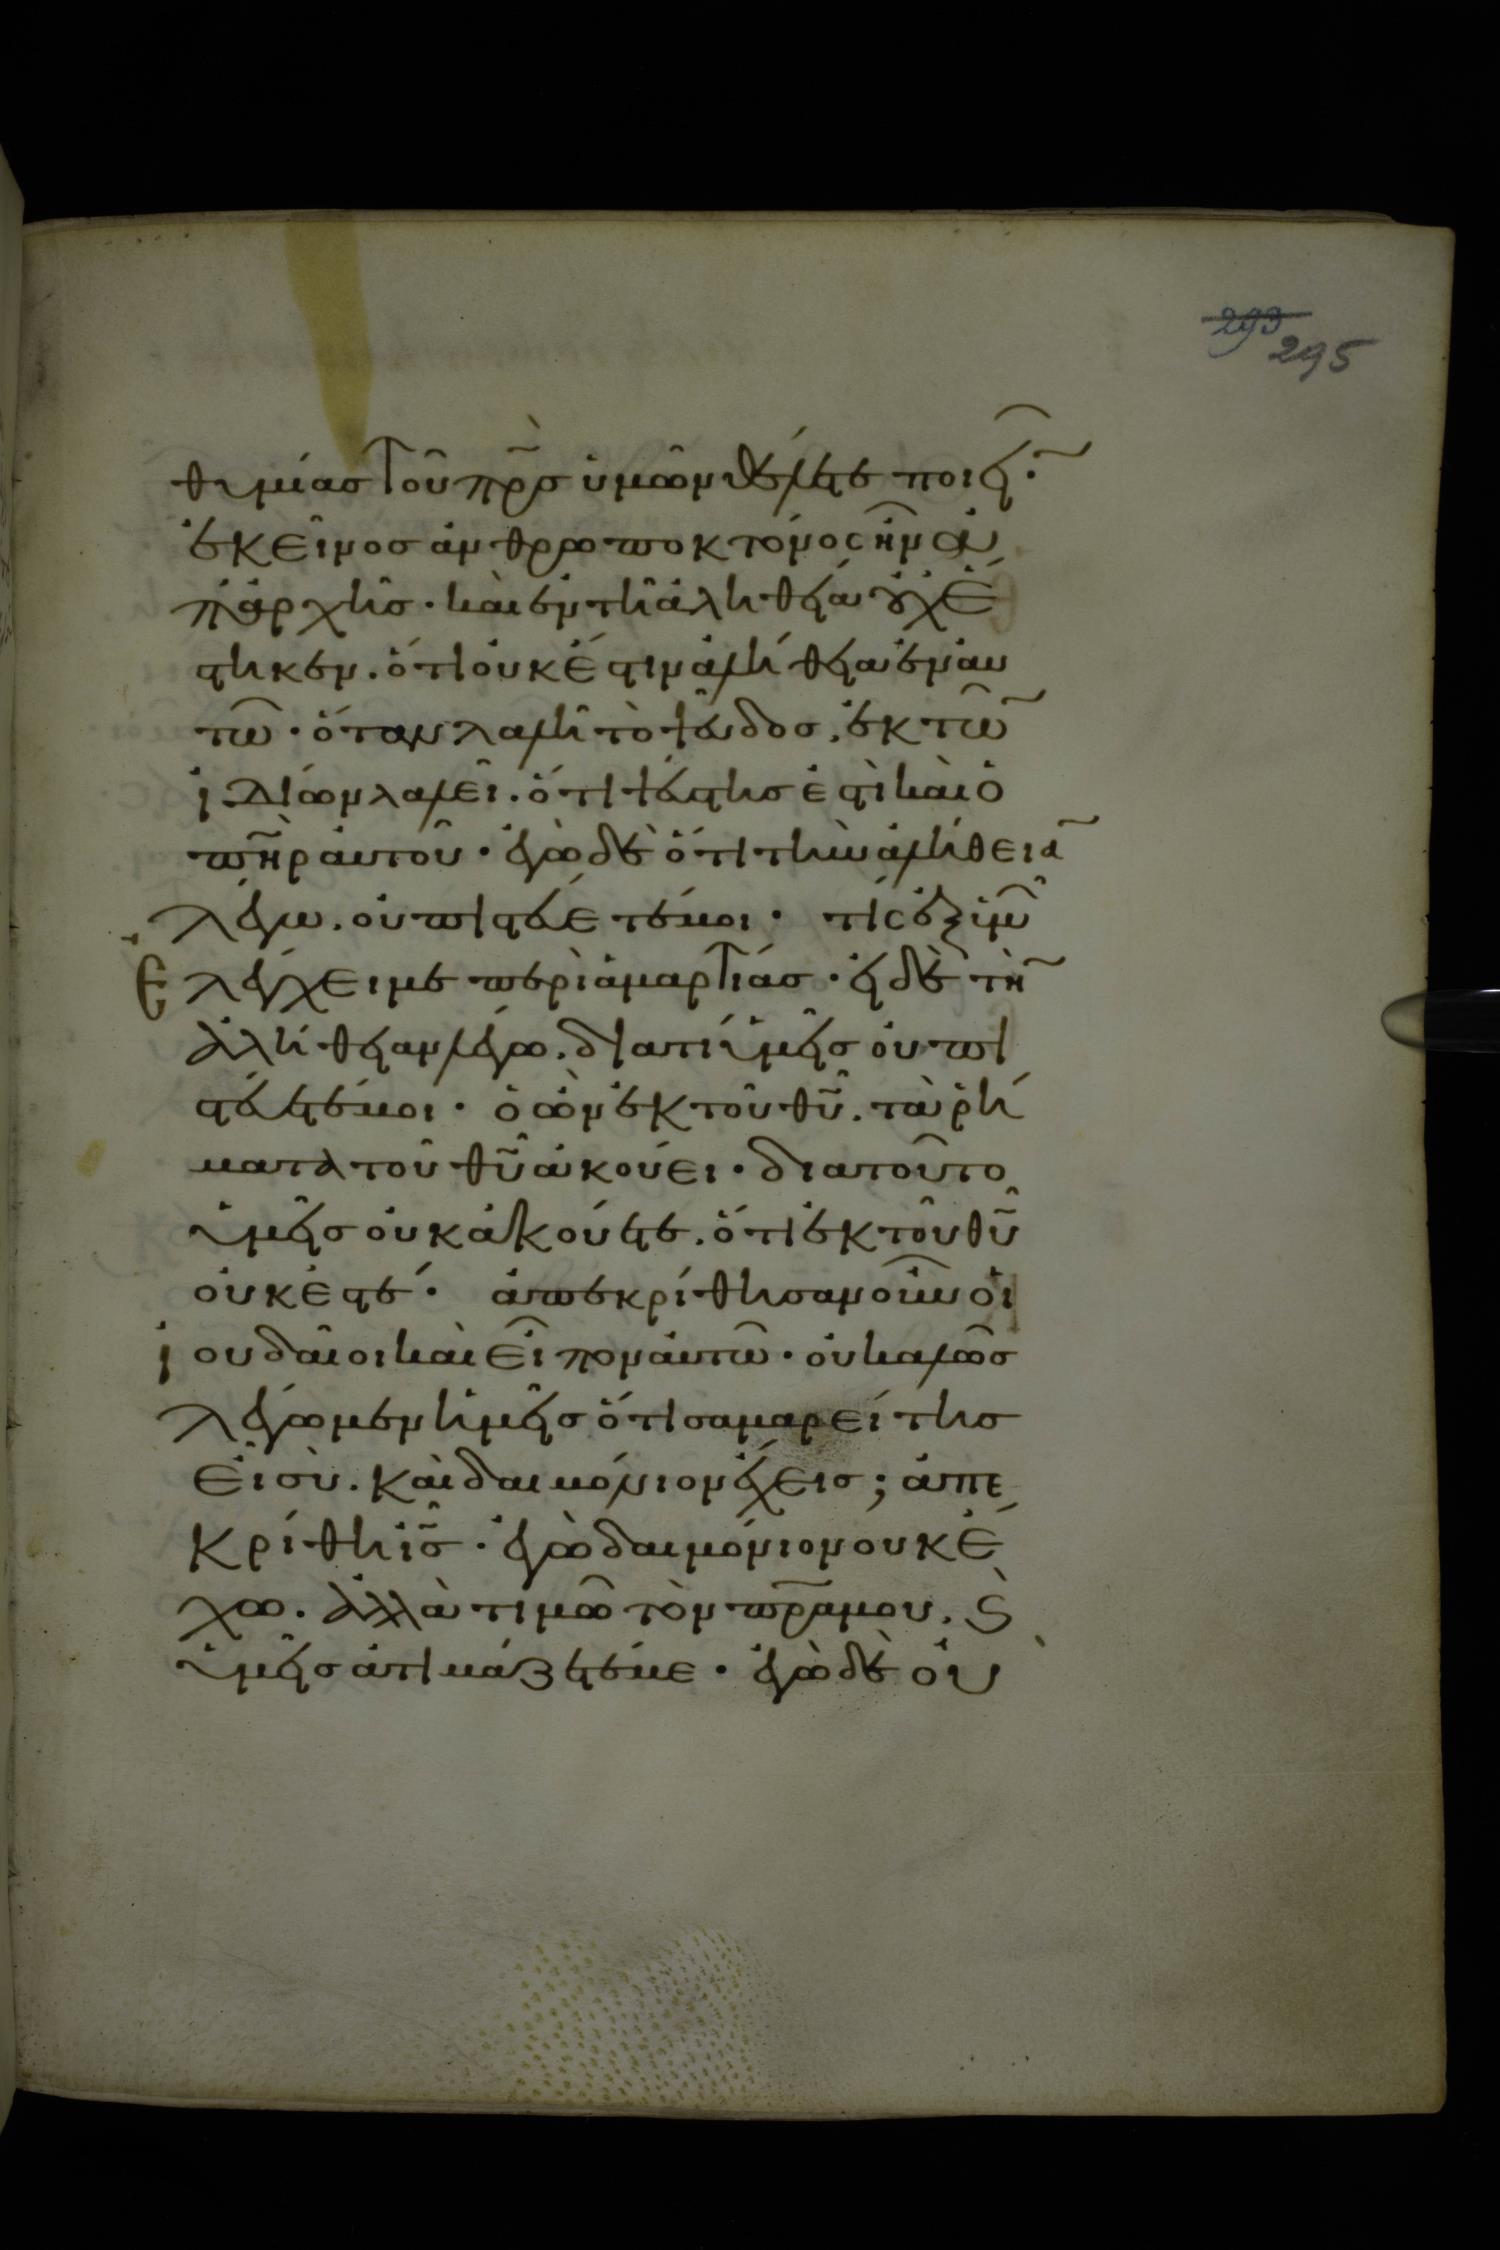 293
295
θυμίας τοῦ πρ̅ς ὑμῶν θέλετε ποιεῖ̅·
ἐκεῖνος ἀνθρωποκτόνος ἦν ἀ
π' ἀρχῆς· καὶ ἐν τῆ ἀληθεία οὐχ ἕ
στηκεν. ὅτι οὐκ ἔστιν ἀλήθεια ἐν αυ
τῶ· ὅταν λαλῆ τὸ ψεῦδος, ἐκ τῶ̅
ἰδίων λαλεῖ. ὅτι ψεύστης ἐστὶ καὶ ὁ
πη̅ρ αὐτοῦ· ἐγὼ δὲ ὅτι τὴν ἀλήθεια̅
λέγω. οὐ πιστεύετέ μοι· τίς ἐξ ὑμῶ̅
ἐλέγχει με περὶ ἁμαρτίας· εἰ δὲ τὴ̅
ἀλήθειαν λέγω. διατί ὑμεῖς οὐ πι
στεύετέ μοι· ὁ ὢν ἐκ τοῦ θυ̅. τὰ ῥή
ματα τοῦ θυ̅ ἀκούει· διατοῦτο
ὑμεῖς οὐκ ἀκούετε. ὅτι ἐκ τοῦ θυ̅
οὐκ ἐστέ· ἀπεκρίθησαν οὖν οἱ
ἰουδαῖοι καὶ εἶπον αὐτῶ· οὐ καλῶς
λέγωμεν ἡμεῖς ὅτι σαμαρείτης
εἶ σὺ. καὶ δαιμόνιον ἔχεις; ἀπε
κρίθη ις̅· ἐγὼ δαιμόνιον οὐκ ἔ
χω. ἀλλὰ τιμῶ τὸν πρ̅α μου. ϗ
ὑμεῖς ἀτιμάζετέ με· ἐγὼ δὲ οὐ